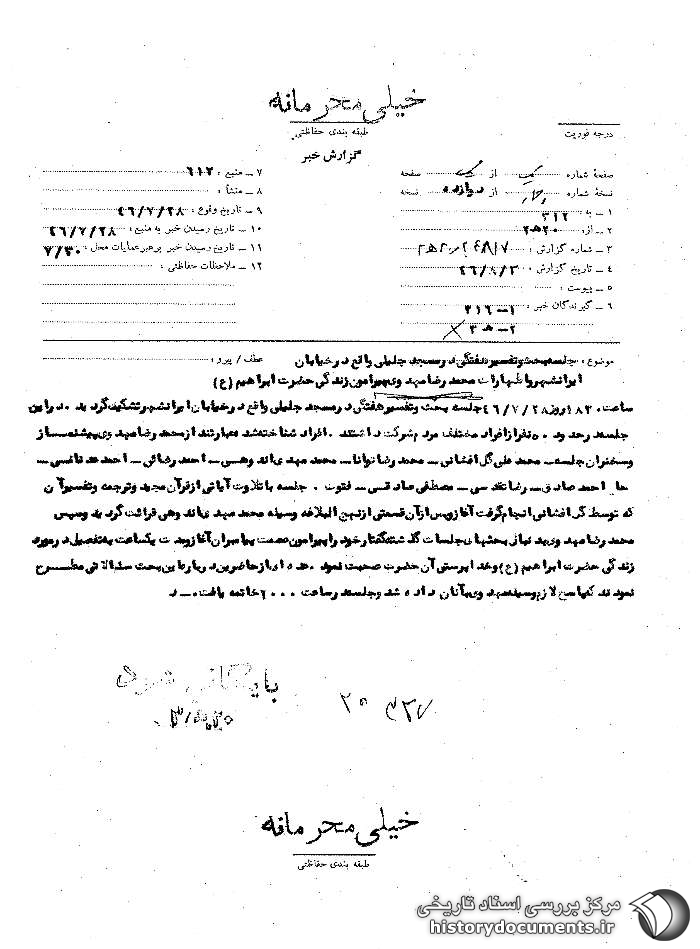 خیلی محرمانه
طبقه بندی حفاظتی
درجه فوریت
گزارش خبر
صفحهٔ شماره یک از یک صفحه
نسخهٔ شماره چهار از دوازده نسخه
۱ ـ به ۳۱۲
۲ ـ از: ۲۰ه۳
۳ ـ شماره گزارش:
۴ ـ تاریخ گزارش: ۴۶/۸/۳
۵ ـ پیوست:
۶ ـ گیرندگان خبر: ۱ـ ۳۱۶
۷ ـ منبع: ۶۱۲
۸ ـ منشأ:
۹ ـ تاریخ وقوع: ۴۶/۷/۲۸
۱۰ ـ تاریخ رسیدن خبر به منبع: ۴۶/۷/۲۸
۱۱ ـ تاریخ رسیدن خبر برهبر عملیات محل: ۷/۳۰
۱۲ ـ ملاحظات حفاظتی:
موضوع: جلسه بحث وتفسیر هفتگی در مسجد جلیلی واقع در خیابان
عطف / پیرو:
ایرانشهر واظهارات محمد رضا مهدوی پیرامون زندگی حضرت ابراهیم (ع)
ساعت روز ۴۶/۷/۲۸ جلسه بحث وتفسیر هفتگی در مسجد جلیلی واقع در خیابان ایرانشهر تشکیل گردید . در این
جلسه در حدود نفر از افراد مختلف مردم شرکت داشتند . افراد شناخته شده عبارتند از محمد رضا مهدوی پیشنماز
وسخنران جلسه ـ محمد علی گل افشانی ـ محمد رضا توانا ـ محمد مهدی اندوهی ـ احمد رضائی ـ احمد ـ
احمد صادق ـ رضا ـ مصطفی صادقی ـ فتوت . جلسه با تلاوت آیاتی از قرآن مجید وترجمه وتفسیر آن
که توسط گل افشانی انجام گرفت آغاز وپس از آن قسمتی از نهج البلاغه وسیله محمد مهدی اندوهی قرائت گردید وسپس
محمد رضا مهدوی بدنبال بحثهای جلسات گذشته گفتار خود را پیرامون عصمت پیامبران آغاز ومدت یکساعت به تفصیل در مورد
زندگی حضرت ابراهیم (ع) وخداپرستی آن حضرت صحبت نمود . عده ای از حاضرین درباره این بحث سئوالاتی مطرح
نمودند که پاسخ لازم وسیله مهدوی بآنان داده شد وجلسه در ساعت خاتمه یافت .
بایگانی شود
خیلی محرمانه
طبقه بندی حفاظتی
مرکز بررسی اسناد تاریخی
historydocuments.ir